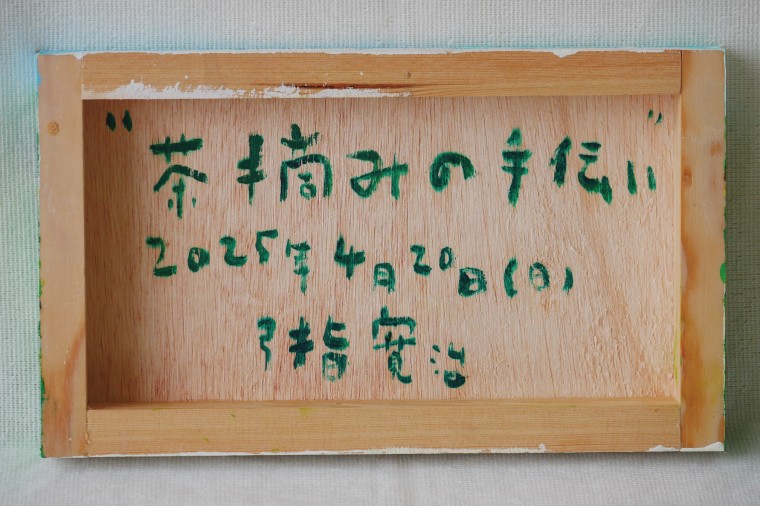 "茶摘みの手伝い"
2025年4月20日(日)
弓指寛治